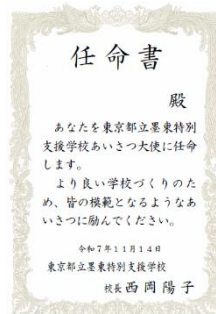 任命書
殿
あなたを東京都立墨東特別
支援学校あいさつ大使に任命
します。
より良い学校づくりのた
め、皆の模範となるようなあ
いさつに励んでください。
令和7年11月14日
東京都立墨東特別支援学校
校長 西岡陽子